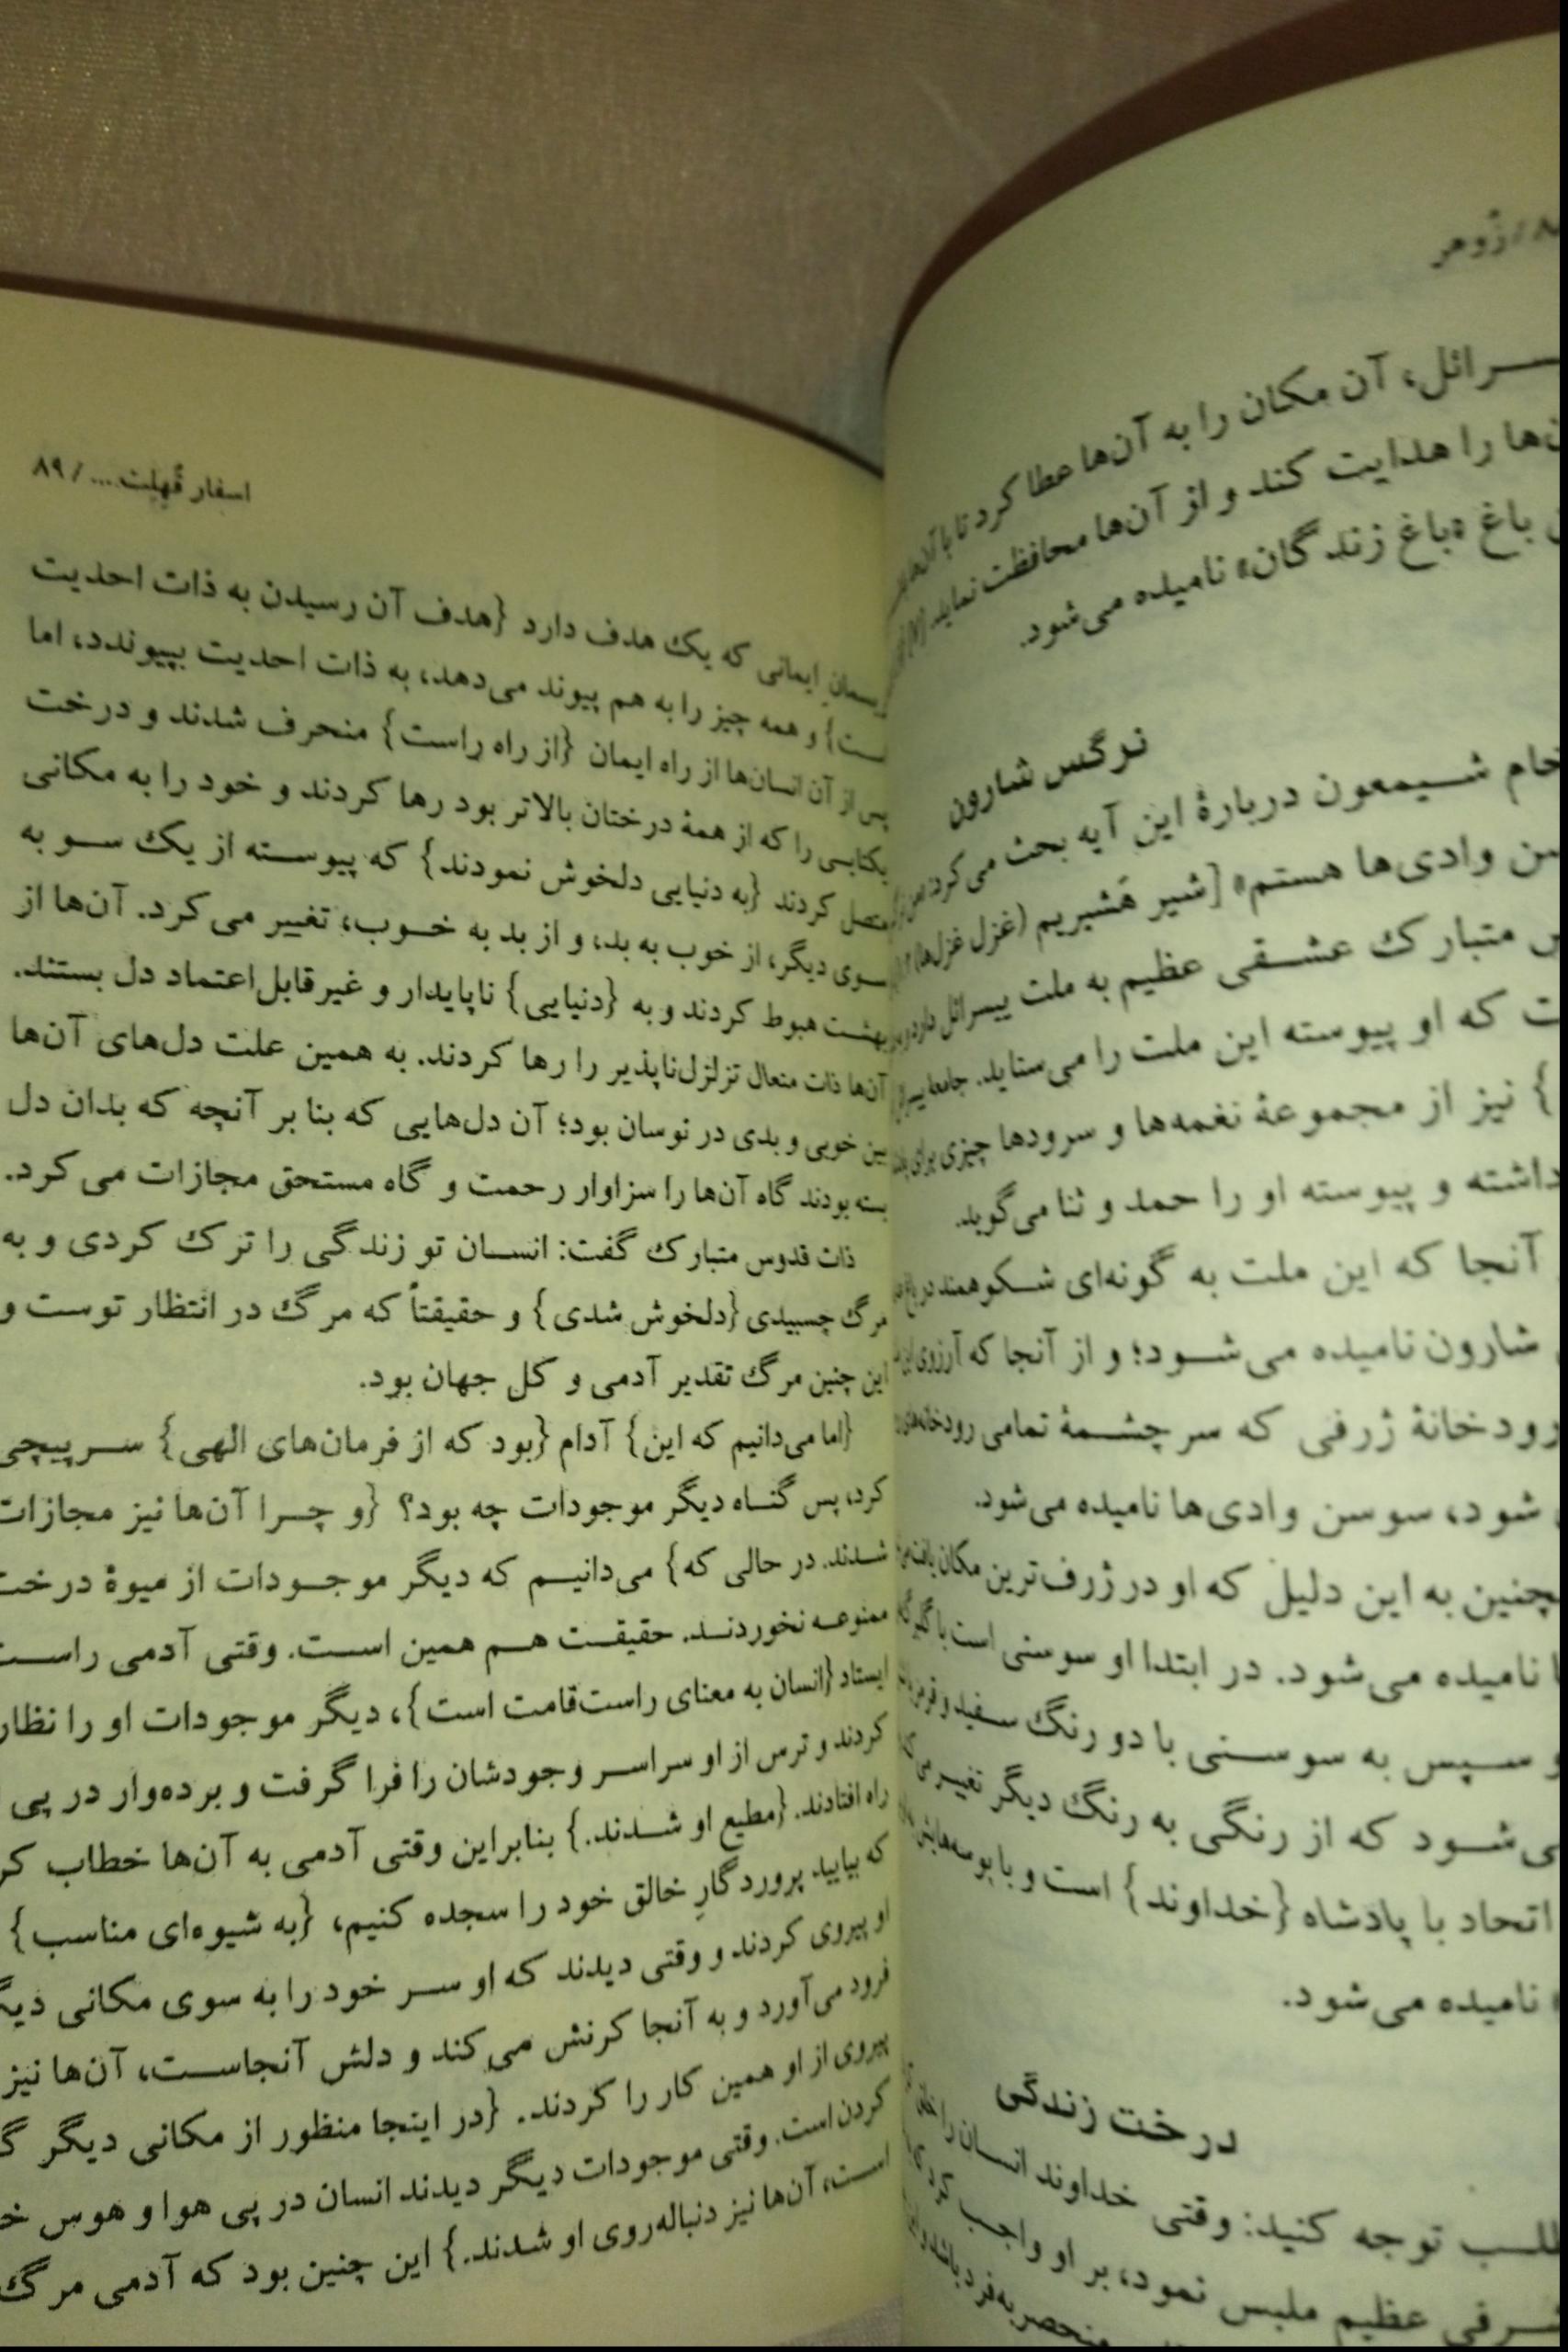 زُوهر
سرائل، آن مکان را به آن‌ها عطا کرد تا با آن‌ها
را هدایت کند و از آن‌ها محافظت نماید.
باغ «باغ زندگان» نامیده می‌شود.
نرگس شارون
شیمعون دربارهٔ این آیه بحث می‌کرد:
وادی‌ها هستم» [شیر هَشیریم (غزل غزل‌ها)
متبارک عشقی عظیم به ملت ییسرائل دارد
که او پیوسته این ملت را می‌ستاید.
} نیز از مجموعهٔ نغمه‌ها و سرودها چیزی برای
داشته و پیوسته او را حمد و ثنا می‌گوید.
آنجا که این ملت به گونه‌ای شکوهمند در باغ
شارون نامیده می‌شود؛ و از آنجا که آرزوی
رودخانهٔ ژرفی که سرچشمهٔ تمامی
شود، سوسن وادی‌ها نامیده می‌شود.
به این دلیل که او در ژرف‌ترین مکان
نامیده می‌شود. در ابتدا او سوسنی است با
و سپس به سوسنی با دو رنگ سفید و قرمز
می‌شود که از رنگی به رنگ دیگر تغییر می
اتحاد با پادشاه {خداوند} است و با بوسه‌هایش
نامیده می‌شود.
درخت زندگی
توجه کنید: وقتی خداوند انسان را
عظیم ملبس نمود، بر او واجب کرد
منحصر به فرد باشد
اسفار قُهِلِت... / ۸۹
ریسمانِ ایمانی که یک هدف دارد {هدف آن رسیدن به ذات احدیت
است} و همه چیز را به هم پیوند می‌دهد، به ذات احدیت بپیوندد، اما
پس از آن انسان‌ها از راه ایمان {از راه راست} منحرف شدند و درخت
یکتایی را که از همهٔ درختان بالاتر بود رها کردند و خود را به مکانی
متصل کردند {به دنیایی دلخوش نمودند} که پیوسته از یک سو به
سوی دیگر، از خوب به بد، و از بد به خوب، تغییر می‌کرد. آن‌ها از
بهشت هبوط کردند و به {دنیایی} ناپایدار و غیرقابل‌اعتماد دل بستند.
آن‌ها ذات متعال تزلزل‌ناپذیر را رها کردند. به همین علت دل‌های آن‌ها
بین خوبی و بدی در نوسان بود؛ آن دل‌هایی که بنا بر آنچه که بدان دل
بسته بودند گاه آن‌ها را سزاوار رحمت و گاه مستحق مجازات می‌کرد.
ذات قدوس متبارک گفت: انسان تو زندگی را ترک کردی و به
مرگ چسبیدی {دلخوش شدی} و حقیقتاً که مرگ در انتظار توست و
این چنین مرگ تقدیر آدمی و کل جهان بود.
{اما می‌دانیم که این} آدام {بود که از فرمان‌های الهی} سرپیچی
کرد، پس گناه دیگر موجودات چه بود؟ {و چرا آن‌ها نیز مجازات
شدند. در حالی که} می‌دانیم که دیگر موجودات از میوهٔ درخت
ممنوعه نخوردند. حقیقت هم همین است. وقتی آدمی راست
ایستاد {انسان به معنای راست‌قامت است}، دیگر موجودات او را نظار
کردند و ترس از او سراسر وجودشان را فرا گرفت و برده‌وار در پی
راه افتادند. {مطیع او شدند.} بنابراین وقتی آدمی به آن‌ها خطاب کر
که بیایید پروردگارِ خالق خود را سجده کنیم، {به شیوه‌ای مناسب}
او پیروی کردند و وقتی دیدند که او سر خود را به سوی مکانی
فرود می‌آورد و به آنجا کرنش می‌کند و دلش آنجاست، آن‌ها نیز
پیروی از او همین کار را کردند. {در اینجا منظور از مکانی دیگر
کردن است. وقتی موجودات دیگر دیدند انسان در پی هوا و هوس
است، آن‌ها نیز دنباله‌روی او شدند.} این چنین بود که آدمی مرگ